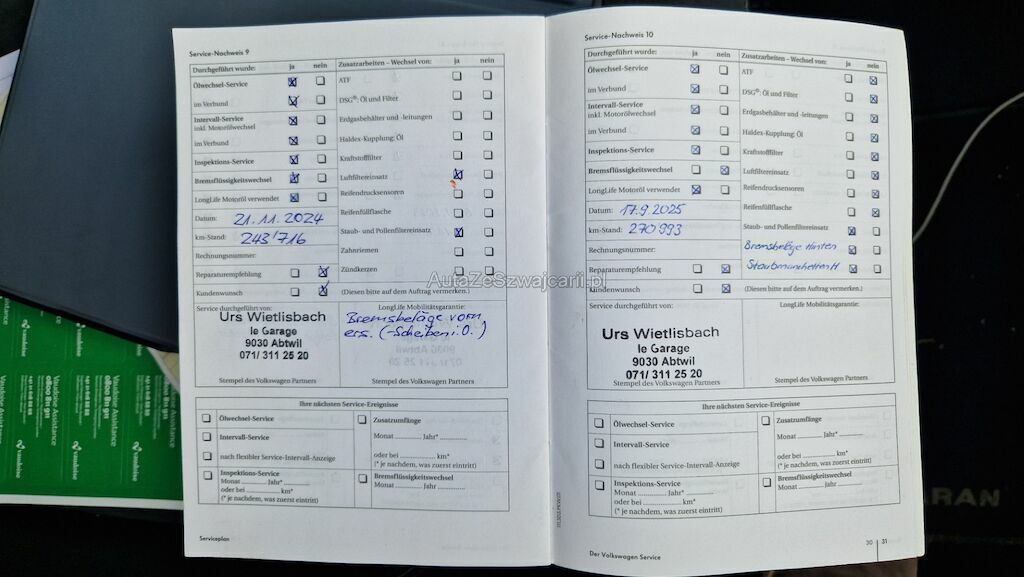 Service-Nachweis 9
Durchgeführt wurde: ja nein
Zusatzarbeiten – Wechsel von: ja nein
Ölwechsel-Service
ATF
im Verbund
DSG®: Öl und Filter
Intervall-Service
inkl. Motorölwechsel
Erdgasbehälter und -leitungen
im Verbund
Haldex-Kupplung: Öl
Inspektions-Service
Kraftstofffilter
Bremsflüssigkeitswechsel
Luftfiltereinsatz
LongLife Motoröl verwendet
Reifendrucksensoren
Datum: 21.11.2024
Reifenfüllflasche
km-Stand: 243'716
Staub- und Pollenfiltereinsatz
Rechnungsnummer:
Zahnriemen
Reparaturempfehlung
Zündkerzen
Kundenwunsch
(Diesen bitte auf dem Auftrag vermerken.)
Service durchgeführt von:
LongLife Mobilitätsgarantie:
Urs Wietlisbach
le Garage
9030 Abtwil
071/ 311 25 20
Bremsbeläge vorn
ers. (-Scheiben i.O.)
Stempel des Volkswagen Partners
Stempel des Volkswagen Partners
Ihre nächsten Service-Ereignisse
Ölwechsel-Service
Zusatzumfänge
Intervall-Service
Monat ............ Jahr* ............
nach flexibler Service-Intervall-Anzeige
oder bei ............ km*
(* je nachdem, was zuerst eintritt)
Inspektions-Service
Monat ............ Jahr* ............
oder bei ............ km*
(* je nachdem, was zuerst eintritt)
Bremsflüssigkeitswechsel
Monat ............ Jahr ............
Serviceplan
Service-Nachweis 10
Durchgeführt wurde: ja nein
Zusatzarbeiten – Wechsel von: ja nein
Ölwechsel-Service
ATF
im Verbund
DSG®: Öl und Filter
Intervall-Service
inkl. Motorölwechsel
Erdgasbehälter und -leitungen
im Verbund
Haldex-Kupplung: Öl
Inspektions-Service
Kraftstofffilter
Bremsflüssigkeitswechsel
Luftfiltereinsatz
LongLife Motoröl verwendet
Reifendrucksensoren
Datum: 17.9.2025
Reifenfüllflasche
km-Stand: 270'993
Staub- und Pollenfiltereinsatz
Rechnungsnummer:
Bremsbeläge Hinten
Reparaturempfehlung
Staubmanchetten H
Kundenwunsch
(Diesen bitte auf dem Auftrag vermerken.)
Service durchgeführt von:
LongLife Mobilitätsgarantie:
Urs Wietlisbach
le Garage
9030 Abtwil
071/ 311 25 20
Stempel des Volkswagen Partners
Stempel des Volkswagen Partners
Ihre nächsten Service-Ereignisse
Ölwechsel-Service
Zusatzumfänge
Intervall-Service
Monat ............ Jahr* ............
nach flexibler Service-Intervall-Anzeige
oder bei ............ km*
(* je nachdem, was zuerst eintritt)
Inspektions-Service
Monat ............ Jahr* ............
oder bei ............ km*
(* je nachdem, was zuerst eintritt)
Bremsflüssigkeitswechsel
Monat ............ Jahr ............
Der Volkswagen Service
30 31
AutaZeSzwajcarii.pl
Vaudoise Assistance
0800 811 911
vaudoise
ARAN